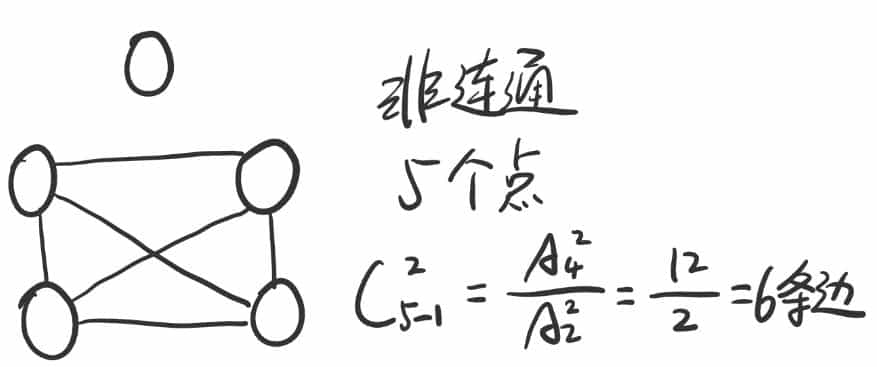 非连通
5个点
C_{5-1}^{2} = \frac{A_4^2}{A_2^2} = \frac{12}{2} = 6条边